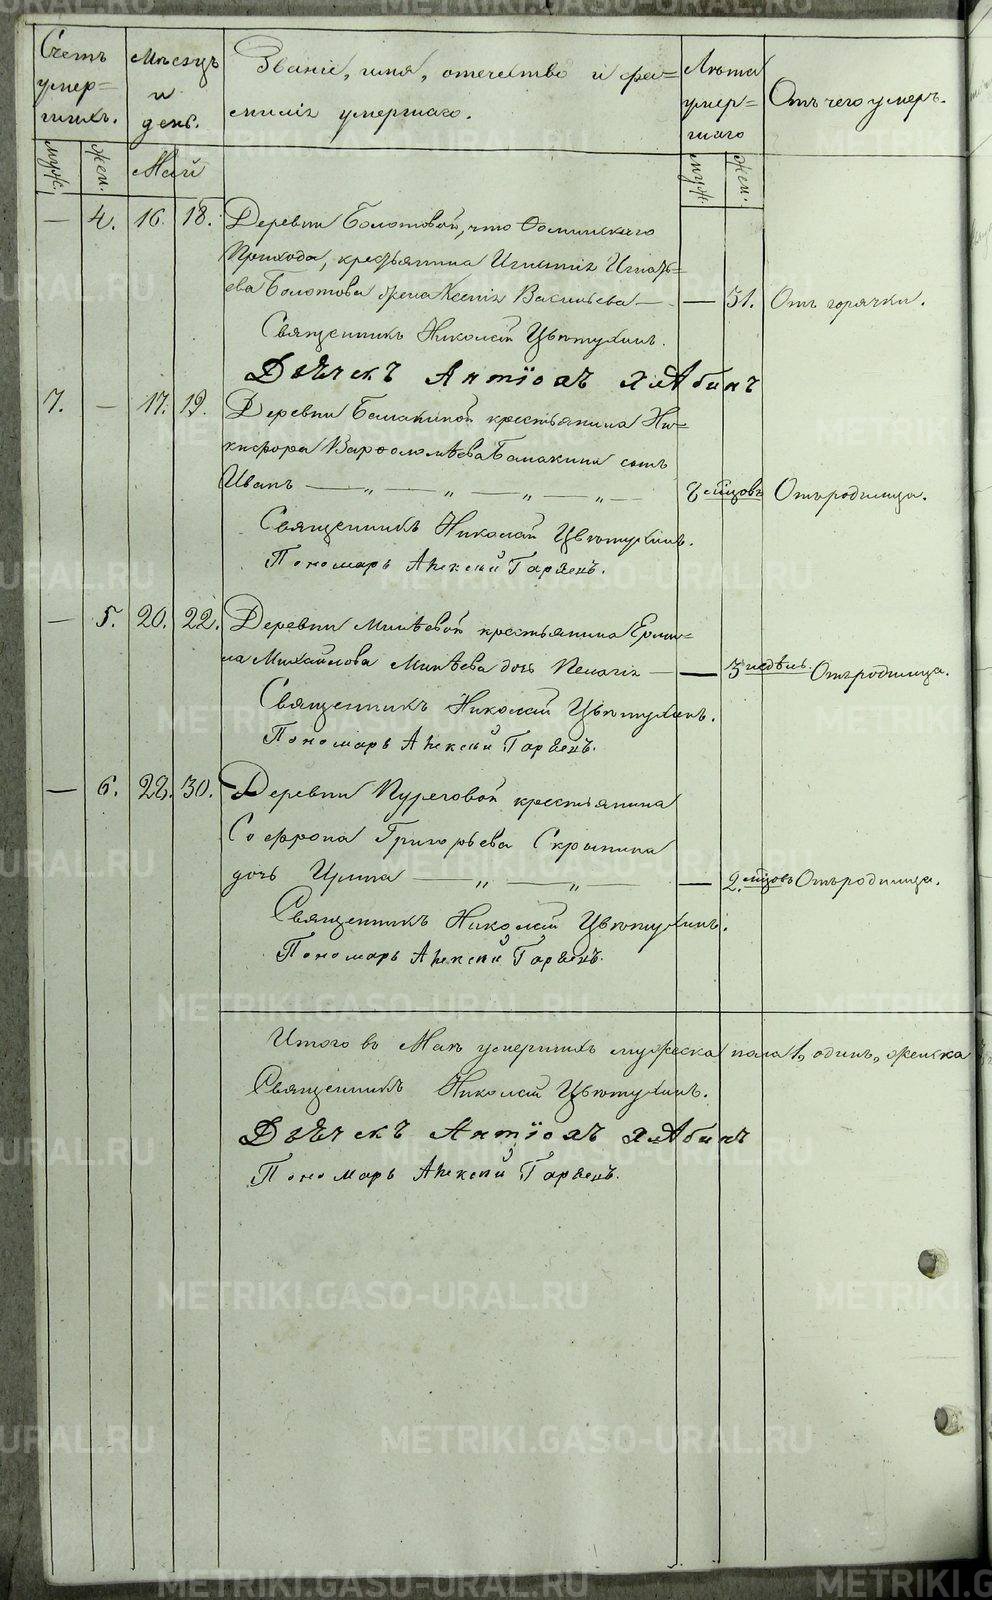 Счетъ умер= шихъ.
Мѣсяцъ и день.
Званіе, имя, отечество и фа=
миліи умершаго.
Лѣта умер= шаго
Отъ чего умеръ.
муж. жен. Май муж. жен.
— 4. 16. 18. Деревни Болотовой, что Фоминскаго
Прихода, крестьянина Игнатія Игнать=
ева Болотова жена Ксенія Васильева — — 51. Отъ горячки.
Священникъ Николай Цвѣтухинъ.
Дьячекъ Антіохъ
7. — 17. 19. Деревни Бамакиной крестьянина Ни=
кифора Варфоломѣева Бамакина сынъ
Иванъ — „ — „ — „ — „ — мцовъ Отъ родимца.
Священникъ Николай Цвѣтухинъ.
Пономарь Алексѣй
— 5. 20. 22. Деревни Минѣевой крестьянина Ерми=
ла Михайлова Минѣева дочь Пелагія — — 3 недѣль. Отъ родимца.
Священникъ Николай Цвѣтухинъ.
Пономарь Алексѣй
— 6. 28. 30. Деревни Пуреговой крестьянина
Софрона Григорьева Скрыпина
дочь Ирина — „ — „ — — 2. мцовъ Отъ родимца.
Священникъ Николай Цвѣтухинъ.
Пономарь Алексѣй
Итого въ Маѣ умершихъ мужеска пола 1, одинъ, женска
Священникъ Николай Цвѣтухинъ.
Дьячекъ Антіохъ
Пономарь Алексѣй
METRIKI.GASO-URAL.RU